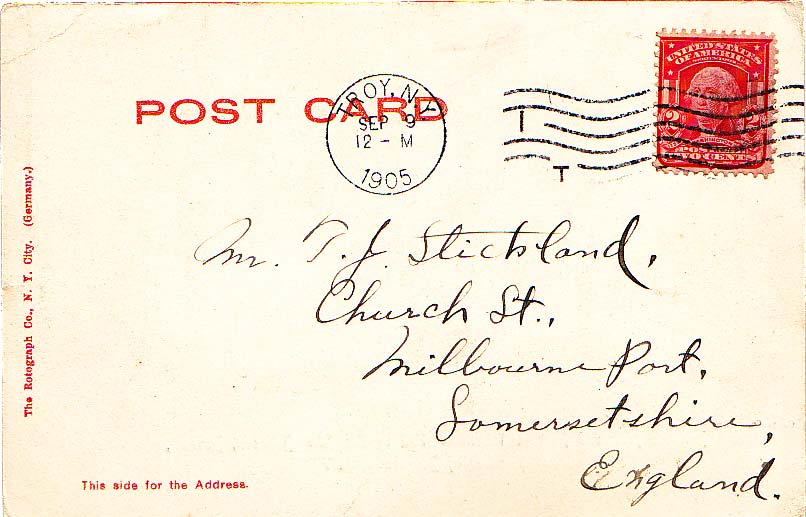 POST CARD
TROY, N.Y.
SEP 9
12 - M
1905
I
T
UNITED STATES
OF AMERICA
2 2
POSTAGE
TWO CENTS
Mr. T. J. Stickland,
Church St.,
Milbourne Port,
Somersetshire,
England.
The Rotograph Co., N. Y. City. (Germany.)
This side for the Address.